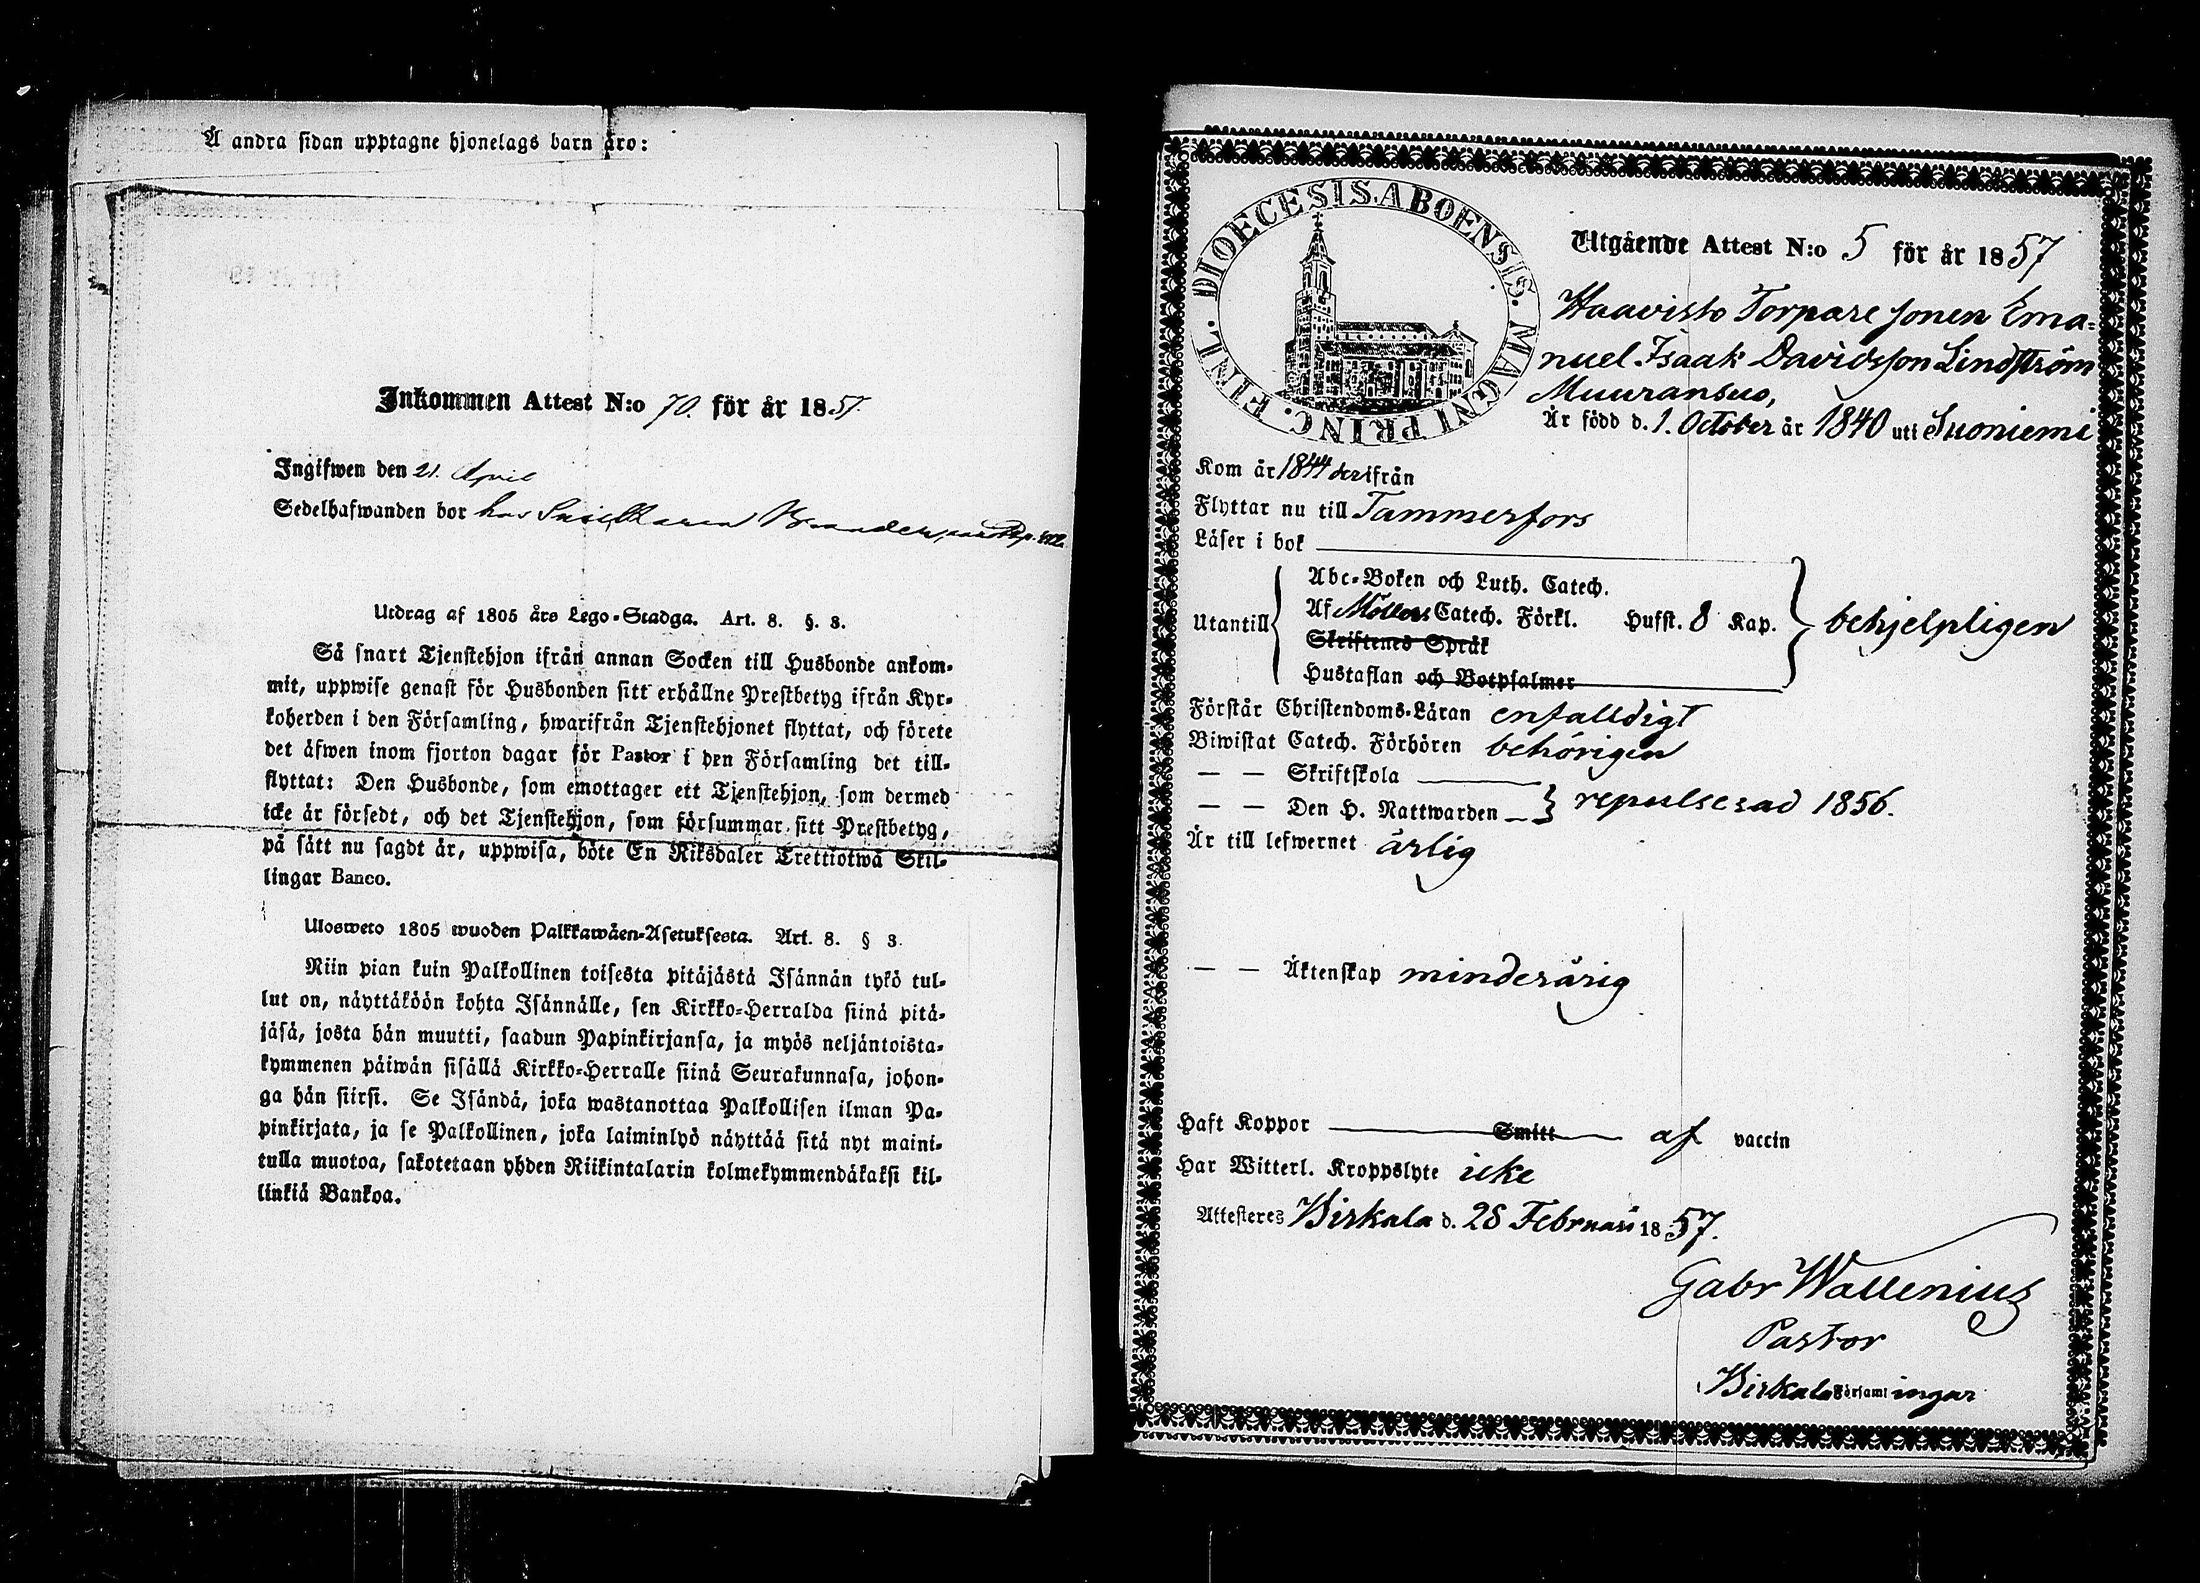 Å andra sidan upptagne hjonelags barn äro:
Inkommen Attest N:o 70. för år 1857.
Ingifwen den 21. April
Sedelhafwanden bor hos
Utdrag af 1805 års Lego-Stadga. Art. 8. §. 3.
Så snart Tjenstehjon ifrån annan Socken till Husbonde ankom-
mit, uppwise genast för Husbonden sitt erhållne Prestbetyg ifrån Kyr-
koherden i den Församling, hwarifrån Tjenstehjonet flyttat, och förete
det äfwen inom fjorton dagar för Pastor i den Församling det till-
flyttat: Den Husbonde, som emottager ett Tjenstehjon, som dermed
icke är försedt, och det Tjenstehjon, som försummar sitt Prestbetyg,
på sätt nu sagdt är, uppwisa, böte En Riksdaler Trettiotwå Skil-
lingar Banco.
Ulosweto 1805 wuoden Palkkawäen-Asetuksesta. Art. 8. § 3.
Niin pian kuin Palkollinen toisesta pitäjästä Isännän tykö tul-
lut on, näyttäköön kohta Isännälle, sen Kirkko-Herralda siinä pitä-
jäsä, josta hän muutti, saadun Papinkirjansa, ja myös neljäntoista-
kymmenen päiwän sisällä Kirkko-Herralle siinä Seurakunnasa, johon-
ga hän siirsi. Se Isändä, joka wastanottaa Palkollisen ilman Pa-
pinkirjata, ja se Palkollinen, joka laiminlyö näyttää sitä nyt maini-
tulla muotoa, sakotetaan yhden Riikintalarin kolmekymmendäkaksi kil-
linkiä Bankoa.
DIOECESIS. ABOENSIS. MAGNI PRINC. FINL.
Utgående Attest N:o 5 för år 1857
Haavisto Torpare sonen Ema-
nuel Isaak Davidsson Lindström
Muuransuo,
Är född d. 1. October år 1840 uti Suoniemi
Kom år 1844 derifrån
Flyttar nu till Tammerfors
Läser i bok
Utantill
Abc-Boken och Luth. Catech.
Af Möllers Catech. Förkl. Hufst. 8 Kap. behjelpligen
Skriftenes Språk
Hustaflan och Botpsalmer
Förstår Christendoms-Läran enfalldigt
Biwistat Catech. Förhören behörigen
— — Skriftskola
— — Den H. Nattwarden repulserad 1856.
Är till lefwernet ärlig
— — Äktenskap minderårig
Haft Koppor Smitt af vaccin
Har Witterl. Kroppslyte icke
Attesteres Birkala d. 28 Februari 1857.
Gabr Wallenius
Pastor
Birkala Församlingar